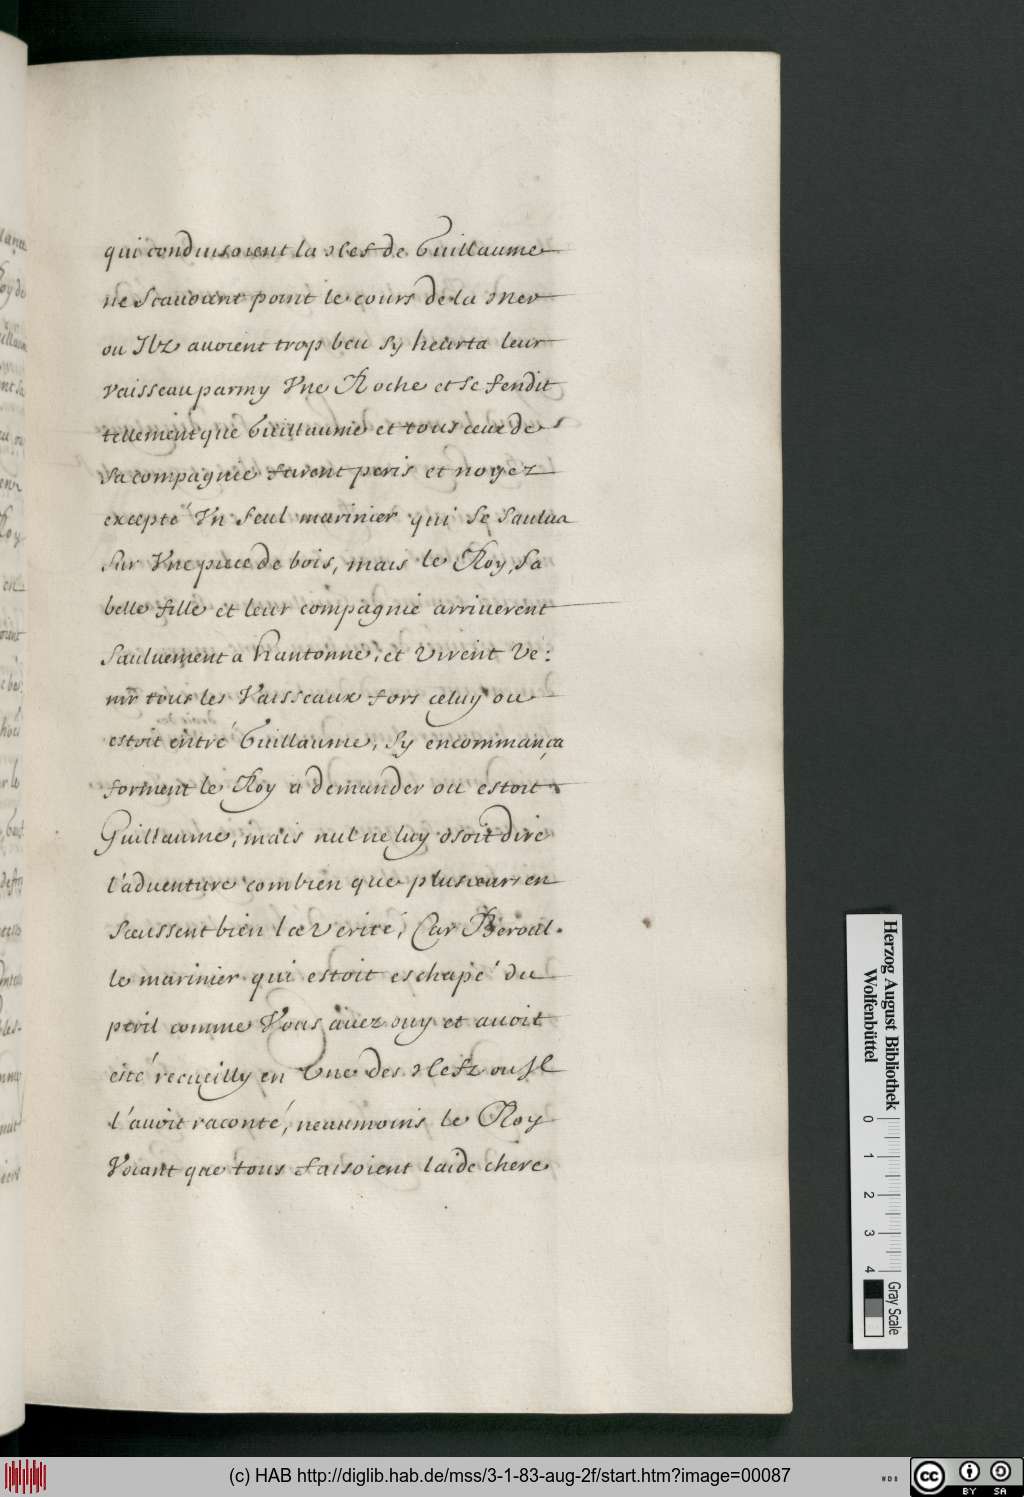 qui conduisoient la nef de Guillaume
ne Scauoient point le cours de la Mer
ou Ilz avoient trop beu Sy heurta leur
vaisseau parmy Vne Roche et se fendit
tellement que Guillaume et tous ceux de
Sa compagnie furent peris et noyez
excepté Vn Seul marinier qui Se Saulua
Sur Vne piece de bois, mais le Roy, Sa
belle fille et leur compagnie arriuerent
Sauluement a hantonne, et Virent Ve:
nir tous les Vaisseaux fors celuy ou
estoit entré Guillaume, Sy encommança
forment le Roy a demander ou estoit
Guillaume, mais nul ne luy osoit dire
l'aduenture combien que plusieurs en
Sceussent bien la Verité, Car Beroul
le marinier qui estoit eschapé du
peril comme Vous avez ouy et auoit
esté recueilly en Vne des nefz ou Il
l'auoit raconté, neanmoins le Roy
Voiant que tous faisoient laide chere
Herzog August Bibliothek
Wolfenbüttel
0 1 2 3 4
Gray Scale
(c) HAB http://diglib.hab.de/mss/3-1-83-aug-2f/start.htm?image=00087
WDB
cc BY SA